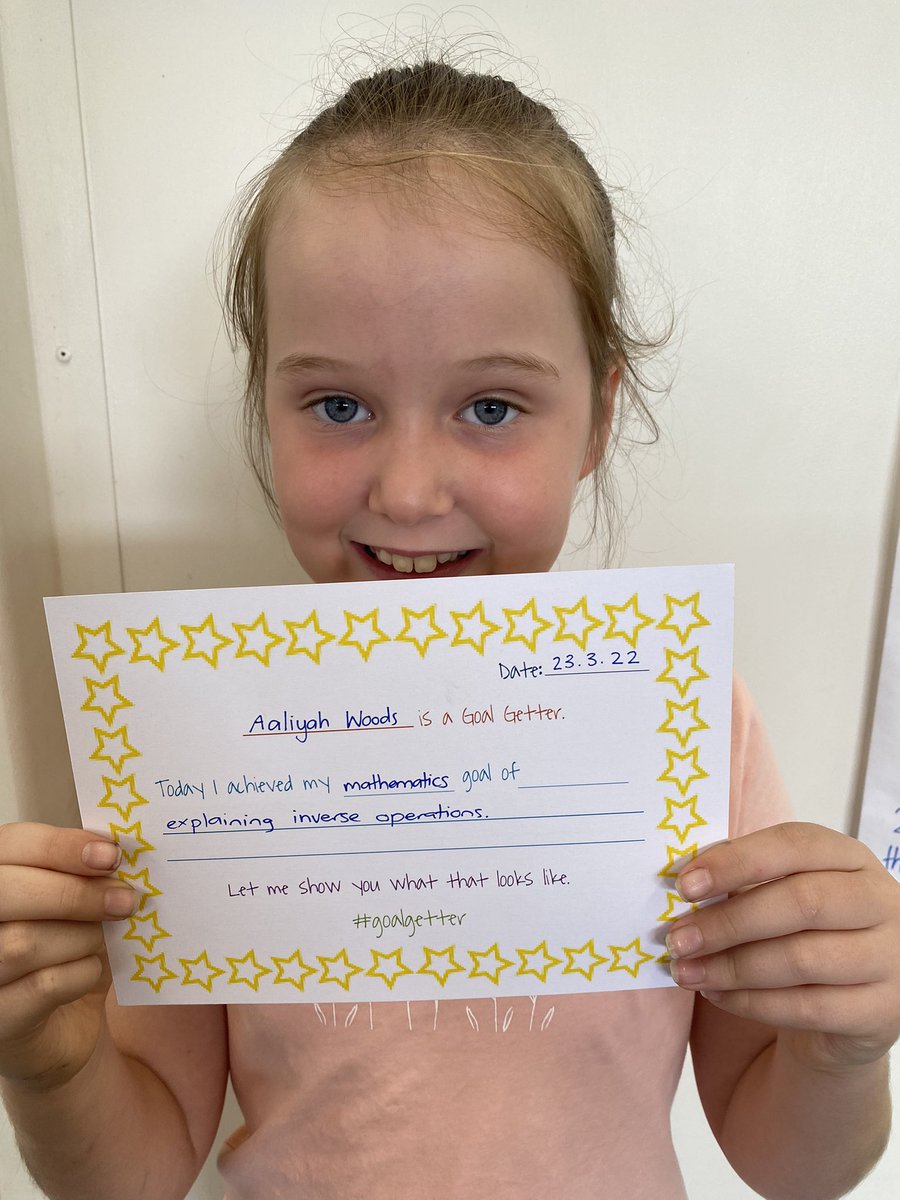 Date: 23.3.22
Aaliyah Woods is a Goal Getter.
Today I achieved my mathematics goal of
explaining inverse operations.
Let me show you what that looks like.
#goalgetter